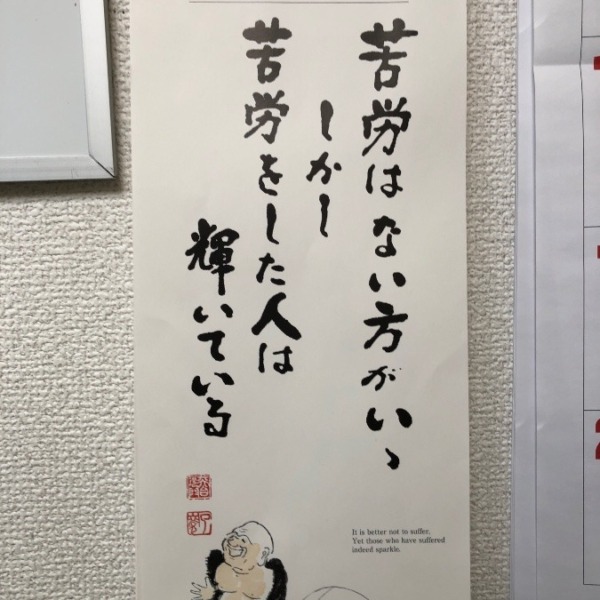 苦労はない方がいゝ
しかし
苦労をした人は
輝いている
It is better not to suffer.
Yet those who have suffered
indeed sparkle.